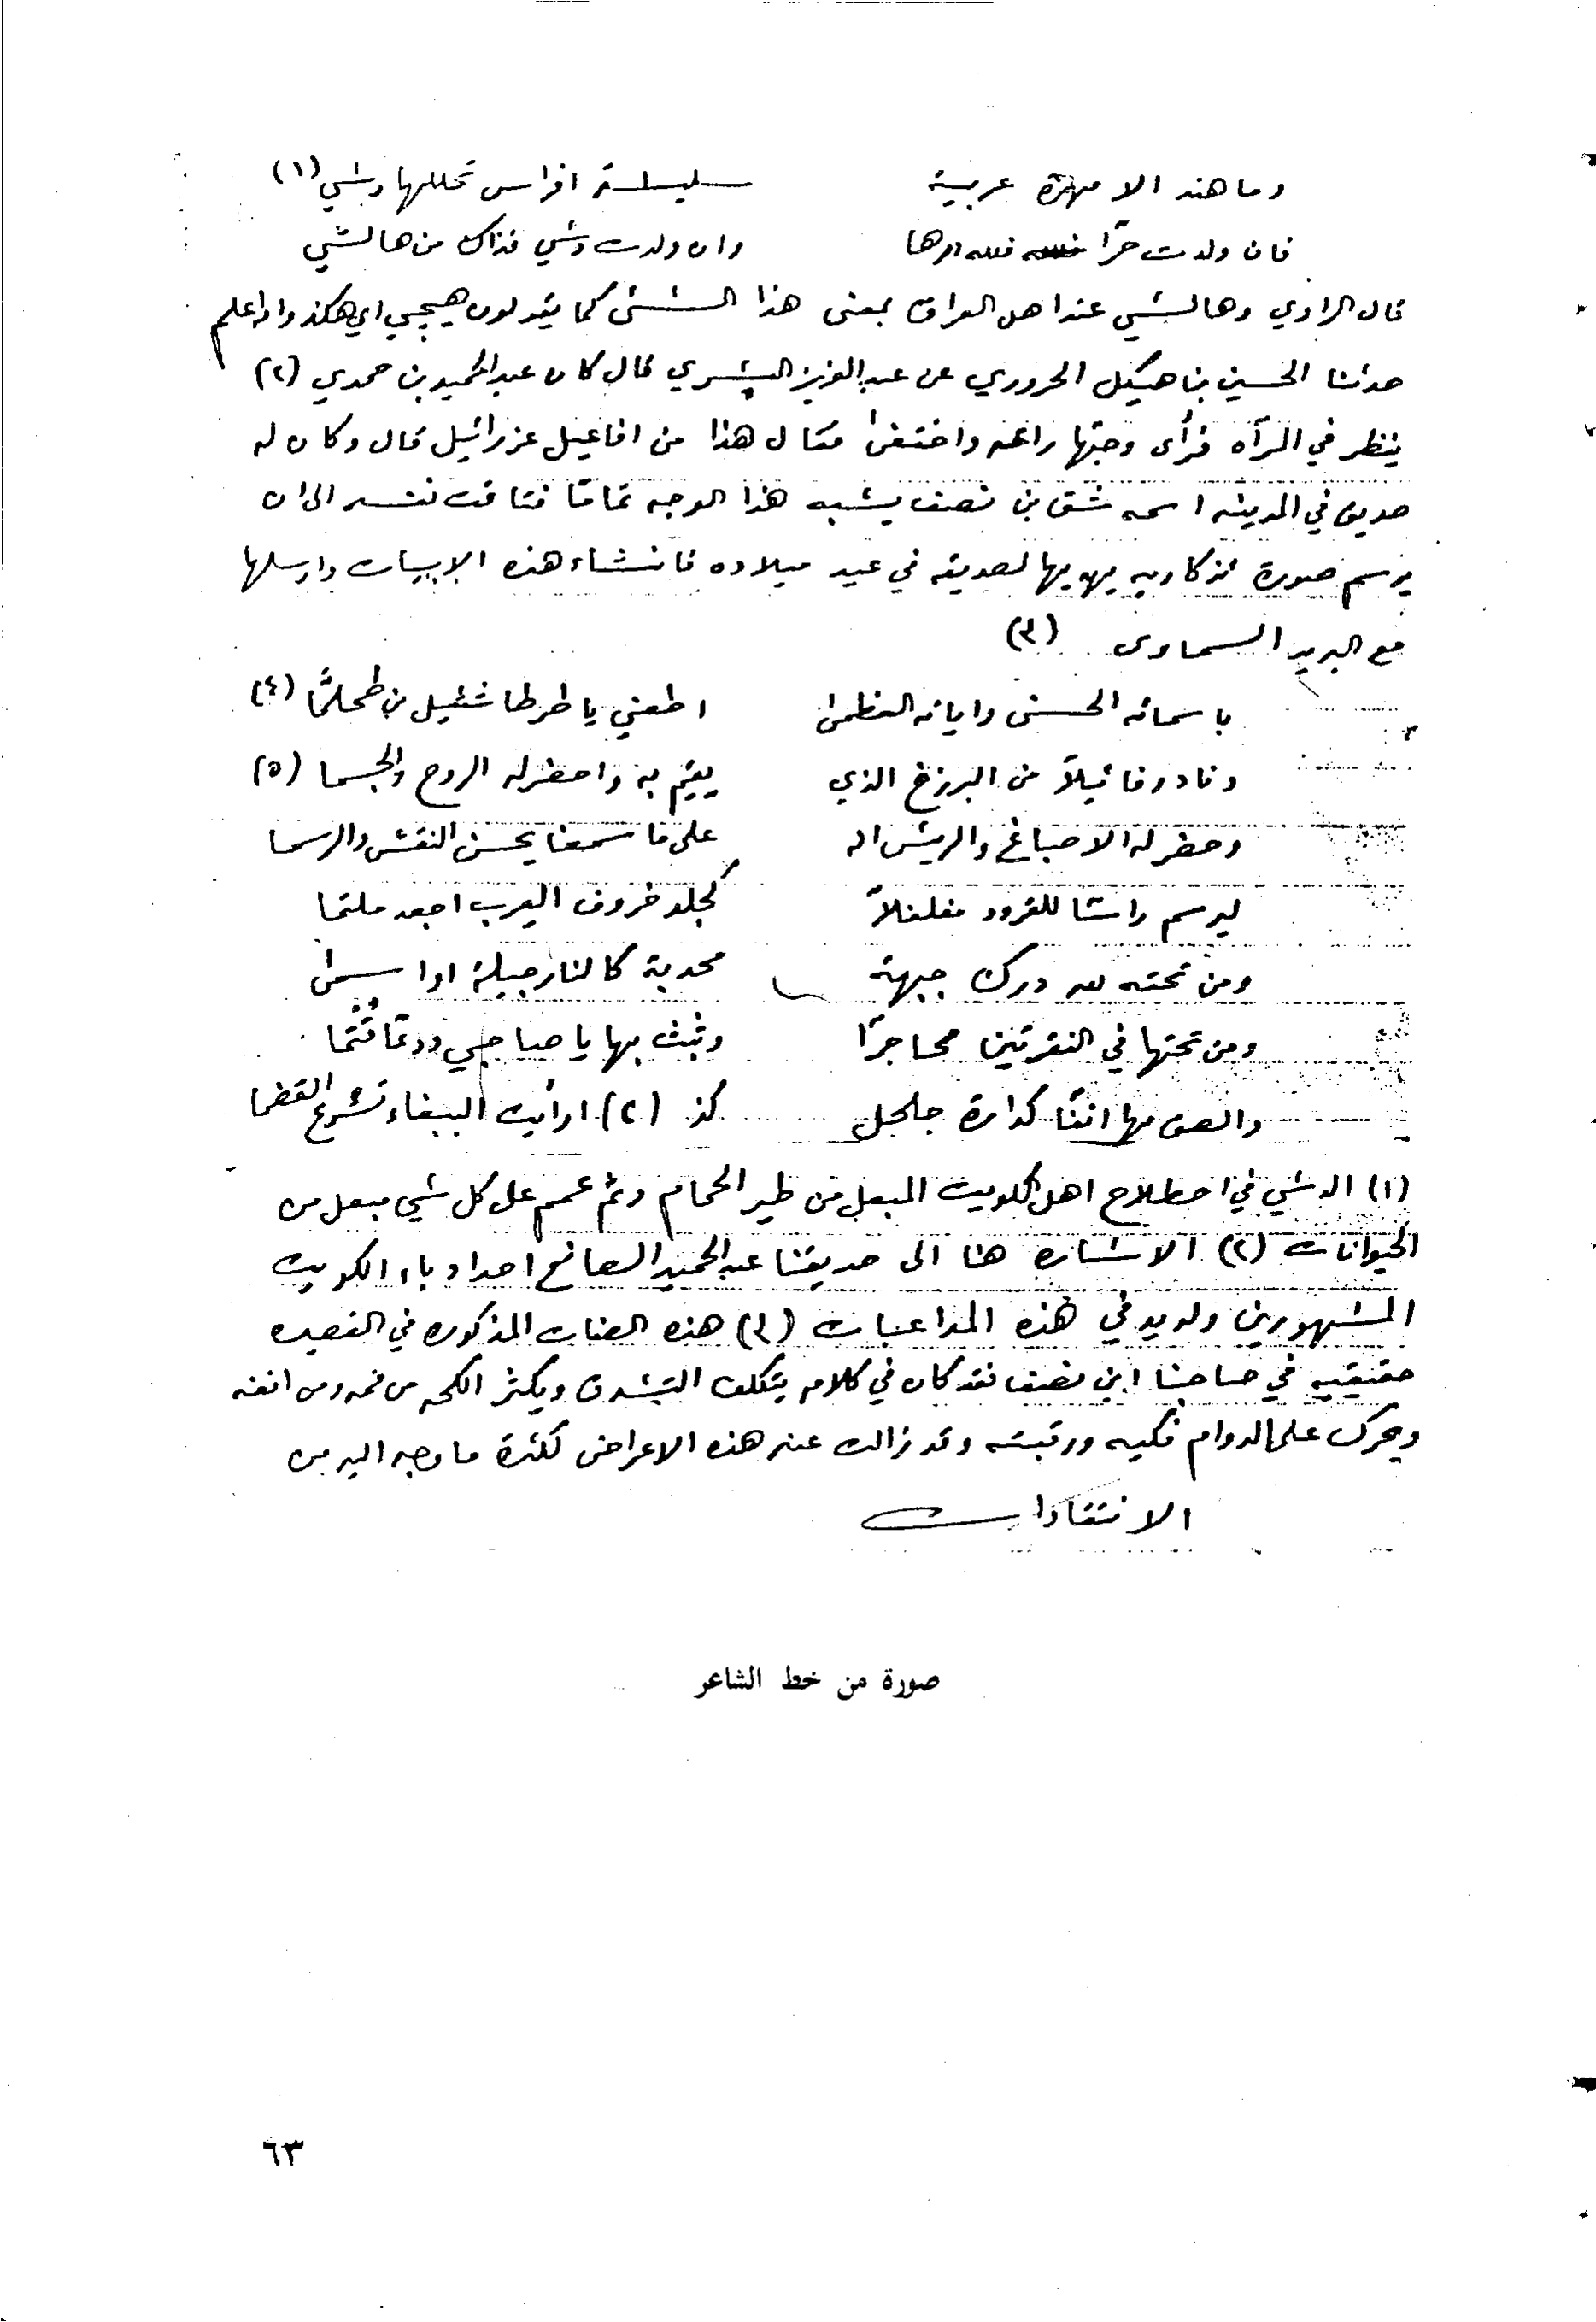 وما هند الا مهرة عربية سليلة افراس تحللها دشي (١)
فان ولدت حرّا فلله درها وان ولدت دشي فذاك من هالشي
قال الراوي وهالشي عند اهل العراق بمعنى هذا الشئ كما يقولون هيجي اي هكذا والله اعلم
حدثنا الحسين بن هيكل الحروري عن عبد العزيز البشري قال كان عبد الحميد بن حمدي (٢)
ينظر في المرآه فرأى وجها راعه واختفى فقال هذا من افاعيل عزرائيل قال وكان له
صديق في المدينه اسمه شق بن نصف يشبه هذا الوجه تماما فتاقت نفسه الى ان
يرسم صورة تذكاريه يهديها لصديقه في عيد ميلاده فانشاء هذه الابيات وارسلها
مع البريد السماوى (٣)
باسمائه الحسنى واياته العظمى اطعني يا طرطا شئيل بن طحلمّا (٤)
وناد رفائيلاً من البرزخ الذي يقيم به واحضر له الروح والجسما (٥)
وحضر له الاصباغ والريش انه على ما سمعنا يحسن النقش والرسما
ليرسم راسًا للقرود مفلفلاً كجلد خروف العرب اجعد ملتما
ومن تحته لله درك جبهة محدبة كالنارجيلة او اسمى
ومن تحتها في النقرتين محاجرًا وثبت بها يا صاحبي ودعًا قُتما
والصق بها انفًا كدامة جلجل كذ (٢) ارأيت الببغاء تشرع القضما
(١) الدشي في اصطلاح اهل الكويت المبعل من طير الحمام وثم عمم على كل شي مبعل من
الحيوانات (٢) الاشاره هنا الى صديقنا عبد الحميد الصانع احد ادباء الكويت
المشهورين وله يد في هذه المداعبات (٣) هذه الصفات المذكوره في القصيده
حقيقيه في صاحبنا ابن نصف فقد كان في كلامه يتكلف التشدق ويكثر الكحه من فمه ومن انفه
ويحرك على الدوام فكيه ورقبته وقد زالت عنه هذه الاعراض لكثرة ما وجه اليه من
الانتقادات
صورة من خط الشاعر
٦٣